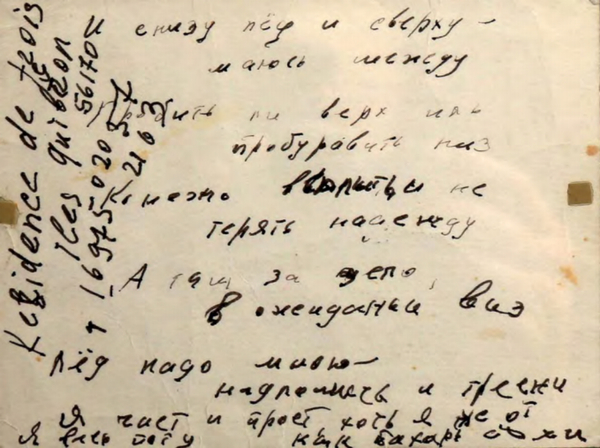 И снизу лёд и сверху —
маюсь между
Пробить ли верх иль
пробуравить низ
Конечно всплыть и не
терять надежду
А там за дело,
в ожиданьи виз
Лёд надо мною —
надломись и тресни
Я чист и прост хоть я не от
Я весь
Residence de trois
Iles quibron
56170
16975-0203
2163